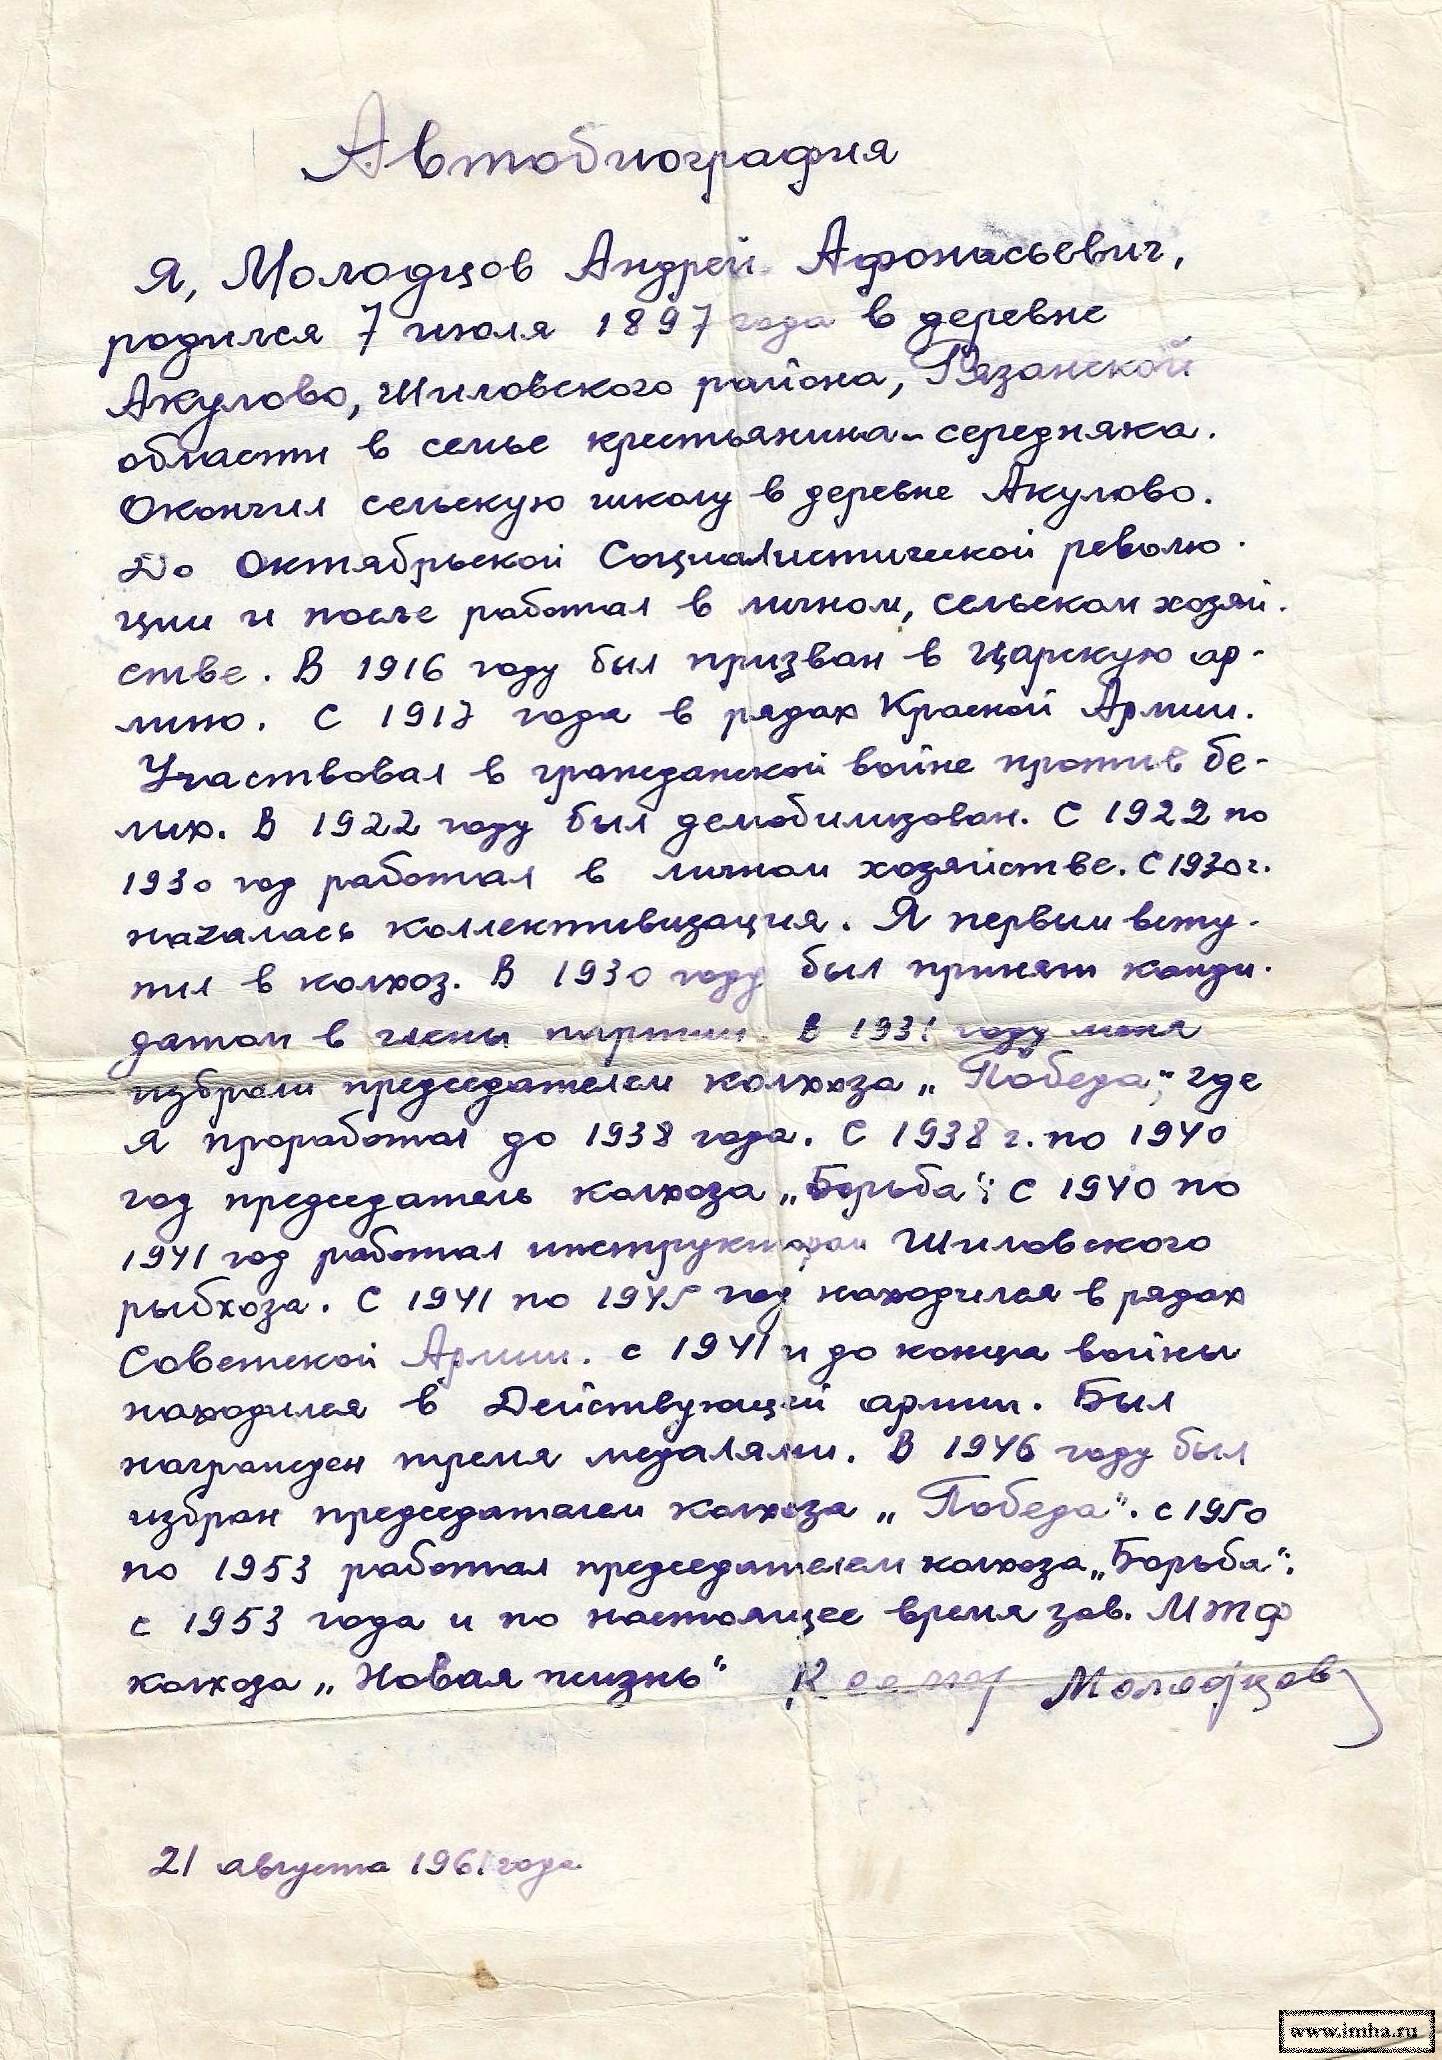 Автобиография
Я, Молодцов Андрей Афонасьевич,
родился 7 июля 1897 года в деревне
Акулово, Шиловского района, Рязанской
области в семье крестьянина-середняка.
Окончил сельскую школу в деревне Акулово.
До Октябрьской Социалистической револю-
ции и после работал в личном, сельском хозяй-
стве. В 1916 году был призван в царскую ар-
мию. С 1917 года в рядах Красной Армии.
Участвовал в гражданской войне против бе-
лых. В 1922 году был демобилизован. С 1922 по
1930 год работал в личном хозяйстве. С 1930 г.
началась коллективизация. Я первым всту-
пил в колхоз. В 1930 году был принят канди-
датом в члены партии. В 1931 году меня
избрали председателем колхоза „Победа", где
я проработал до 1938 года. С 1938 г. по 1940
год председатель колхоза „Борьба". С 1940 по
1941 год работал инструктором Шиловского
рыбхоза. С 1941 по 1945 год находился в рядах
Советской Армии. с 1941 и до конца войны
находился в Действующей армии. Был
награжден тремя медалями. В 1946 году был
избран председателем колхоза „Победа". с 1950
по 1953 работал председателем колхоза „Борьба".
с 1953 года и по настоящее время зав. МТФ
колхоза „Новая жизнь" Молодцов
21 августа 1961 года
www.imha.ru